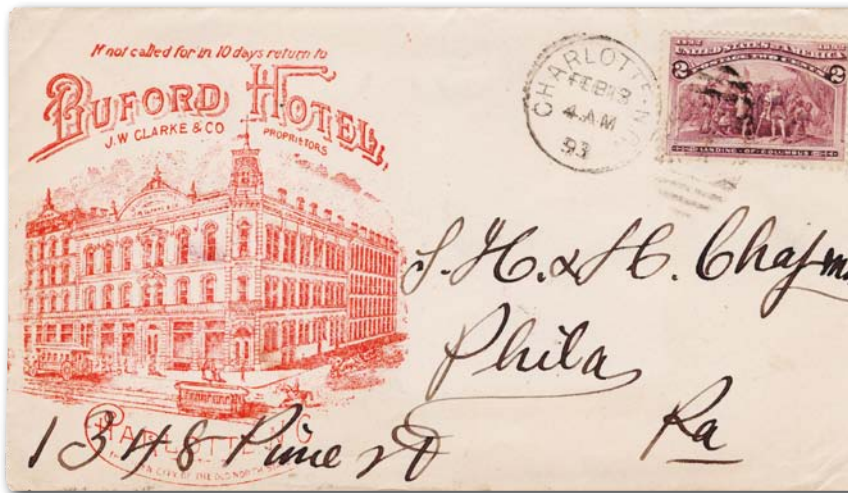 If not called for in 10 days return to
BUFORD HOTEL,
J.W CLARKE & CO PROPRIETORS
CHARLOTTE N C
CITY OF THE OLD NORTH
CHARLOTTE N.C.
FEB 13
4 AM
93
1492 1892
UNITED STATES OF AMERICA
POSTAGE TWO CENTS
2 2
LANDING OF COLUMBUS
S. H. & H. Chapm
Phila
Pa
1348 Pine st